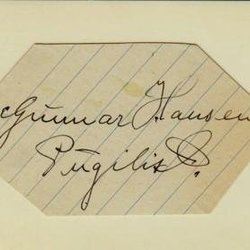 Gunnar Hansen
Pugilist